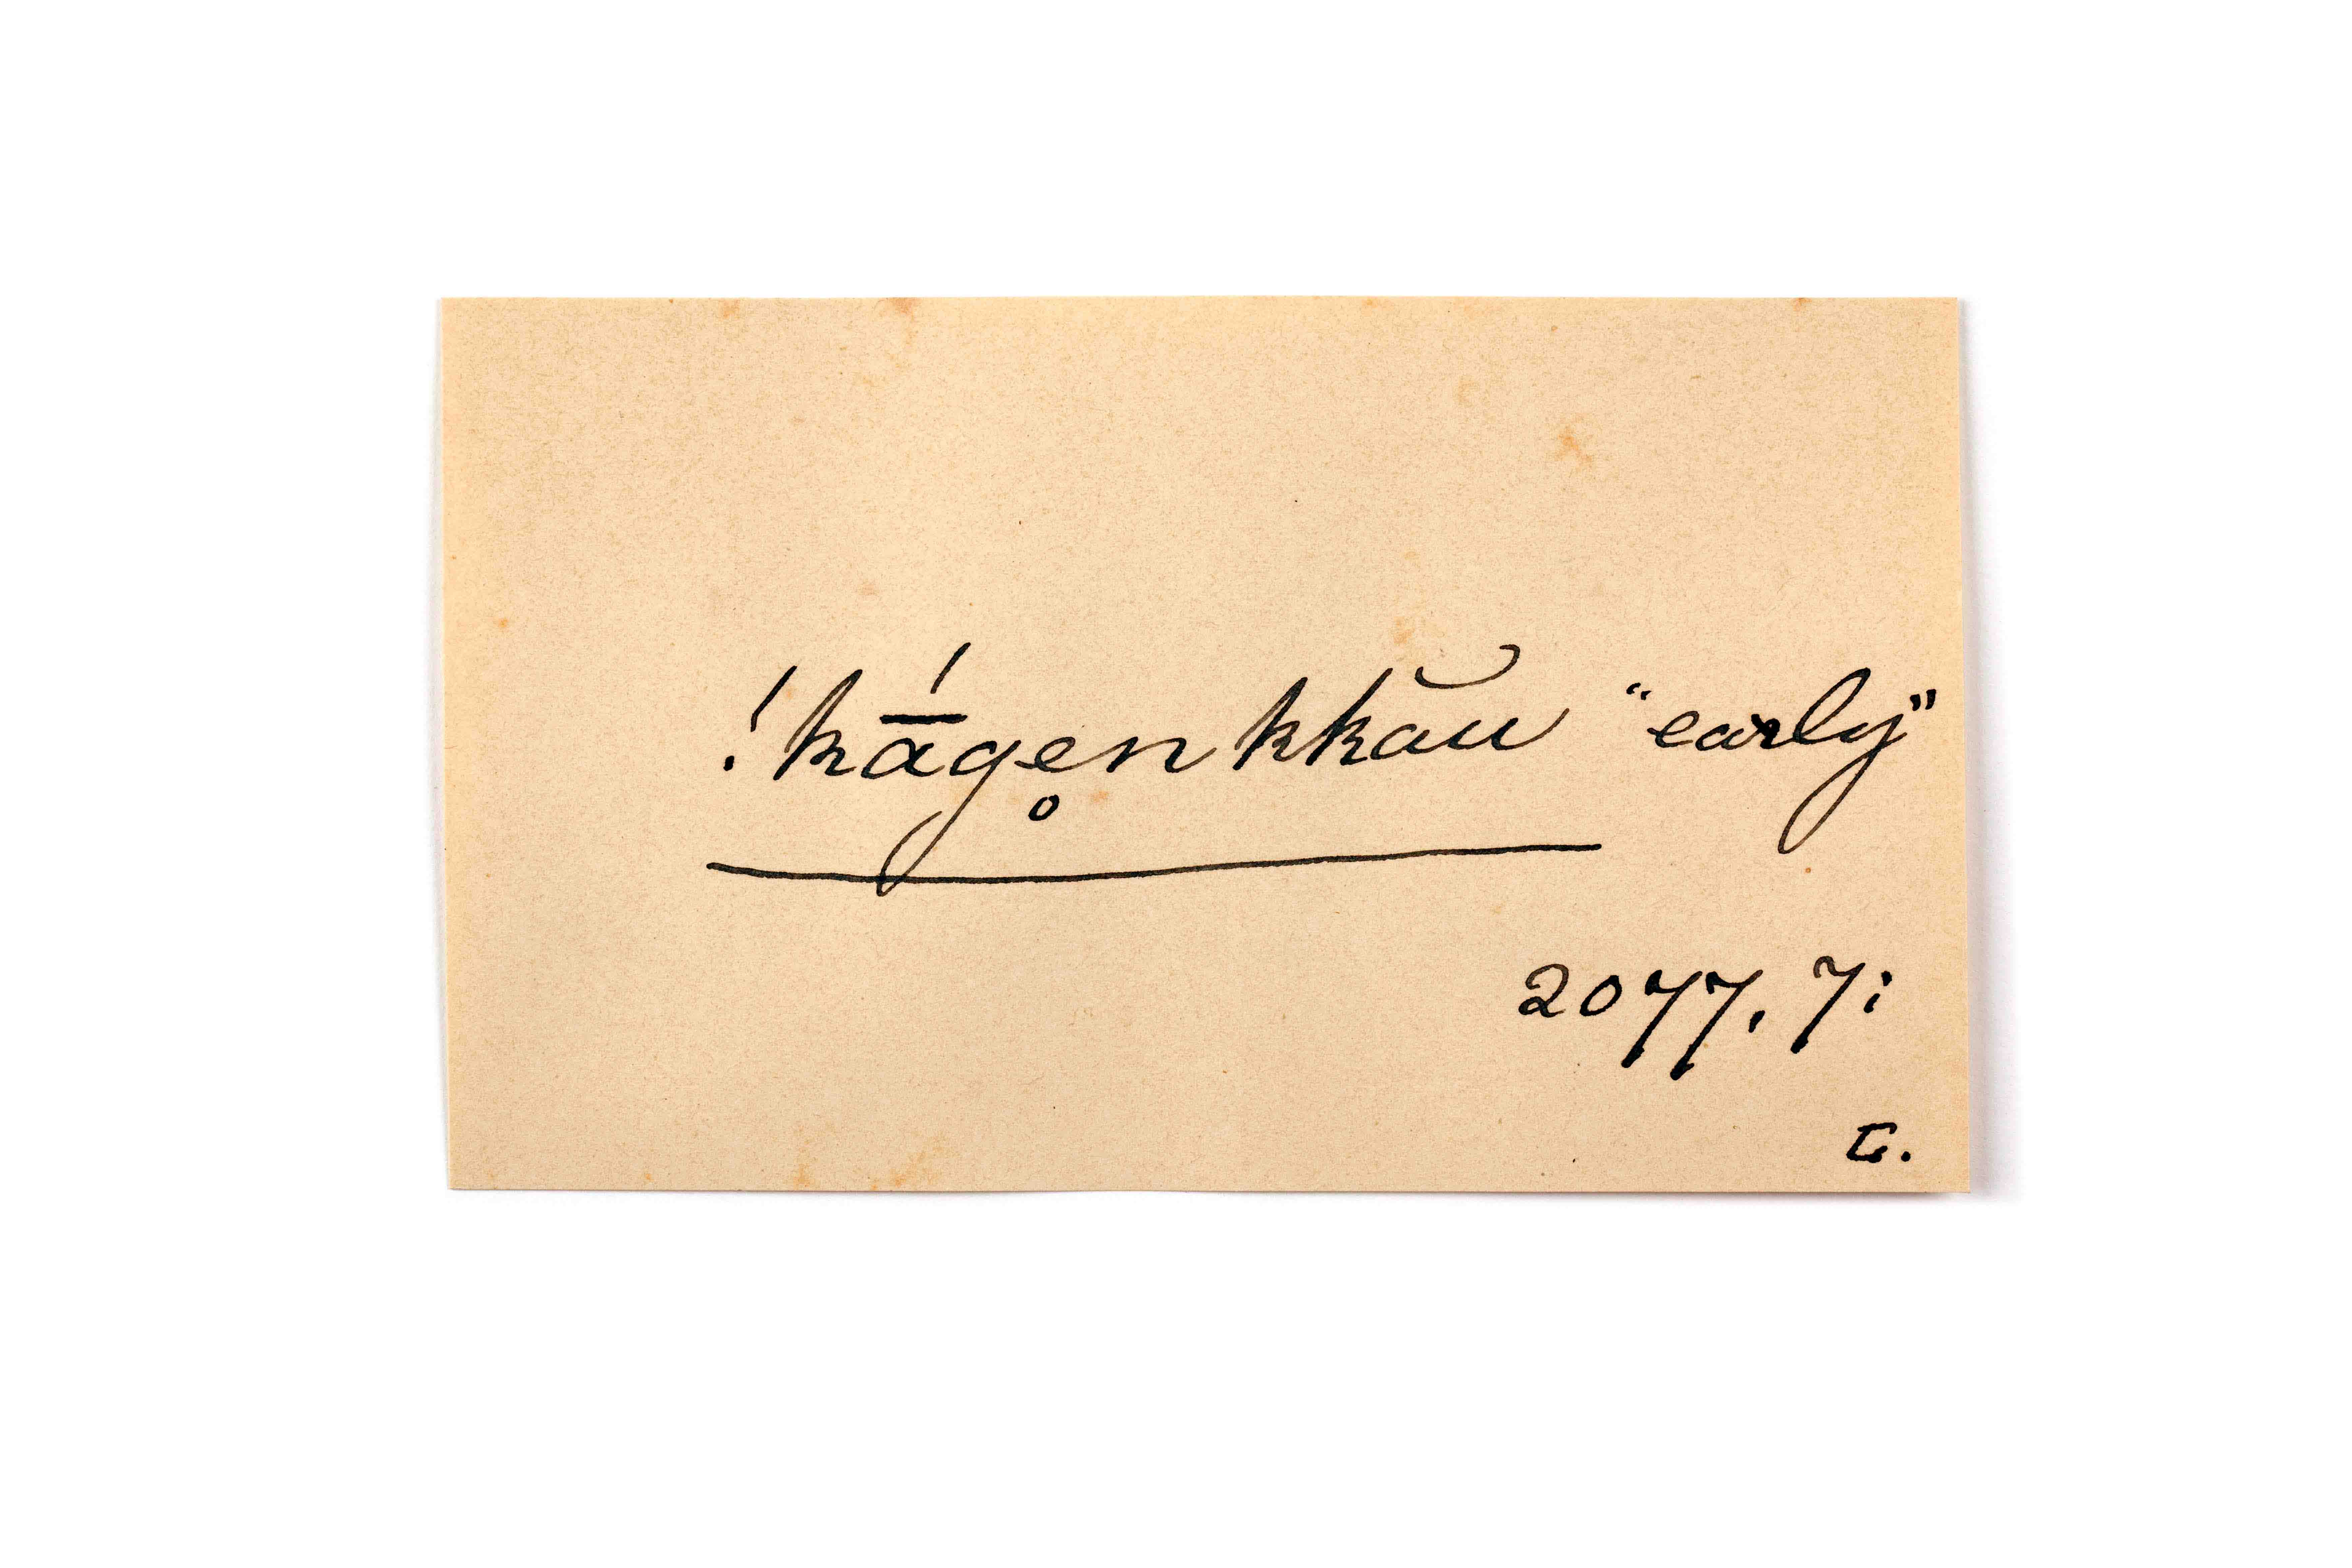 !kā́ge̥n kkău “early”
2077. 7:
C.